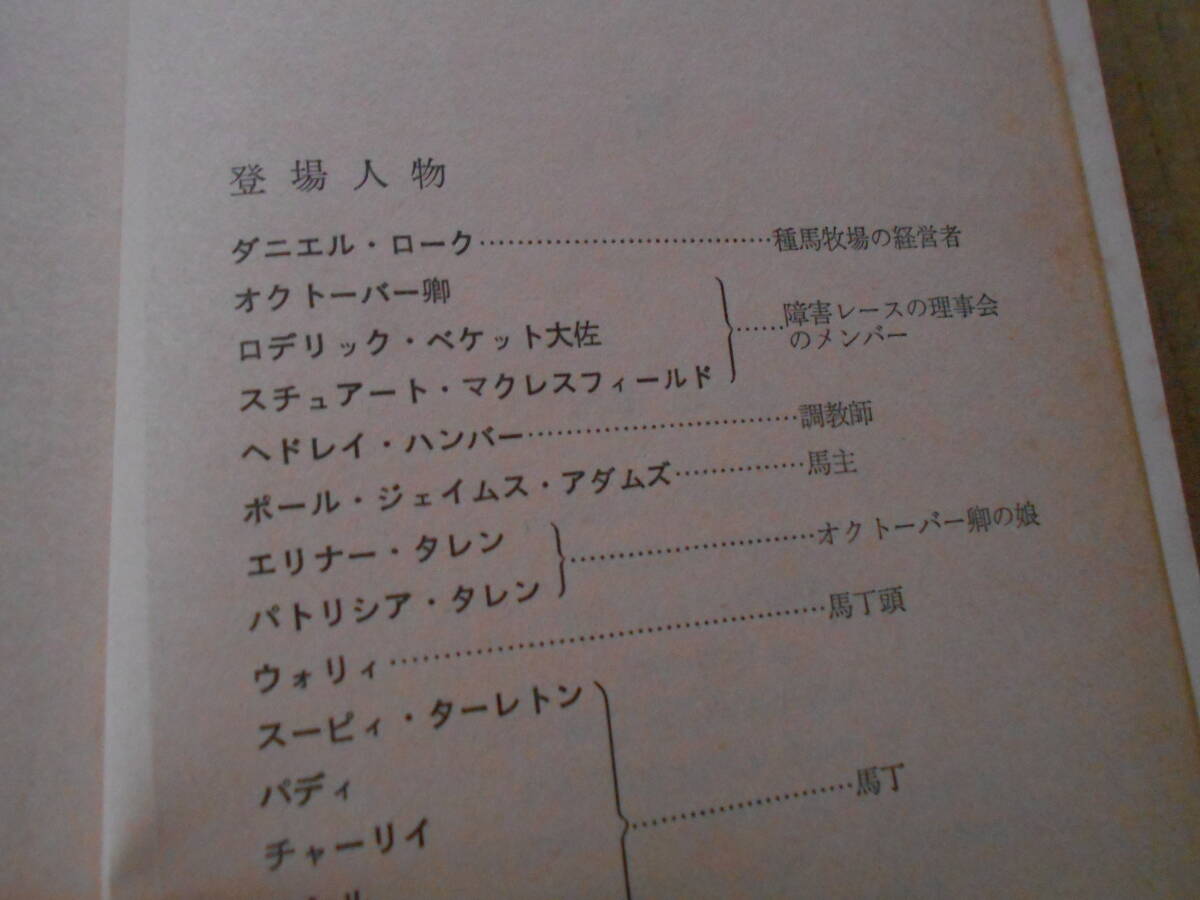 登場人物
ダニエル・ローク……………………………種馬牧場の経営者
オクトーバー卿
ロデリック・ベケット大佐
スチュアート・マクレスフィールド
……障害レースの理事会
のメンバー
ヘドレイ・ハンバー…………………………調教師
ポール・ジェイムス・アダムズ……………馬主
エリナー・タレン
パトリシア・タレン
………………………オクトーバー卿の娘
ウォリィ…………………………………………馬丁頭
スーピィ・ターレトン
パディ
チャーリイ
……………………馬丁